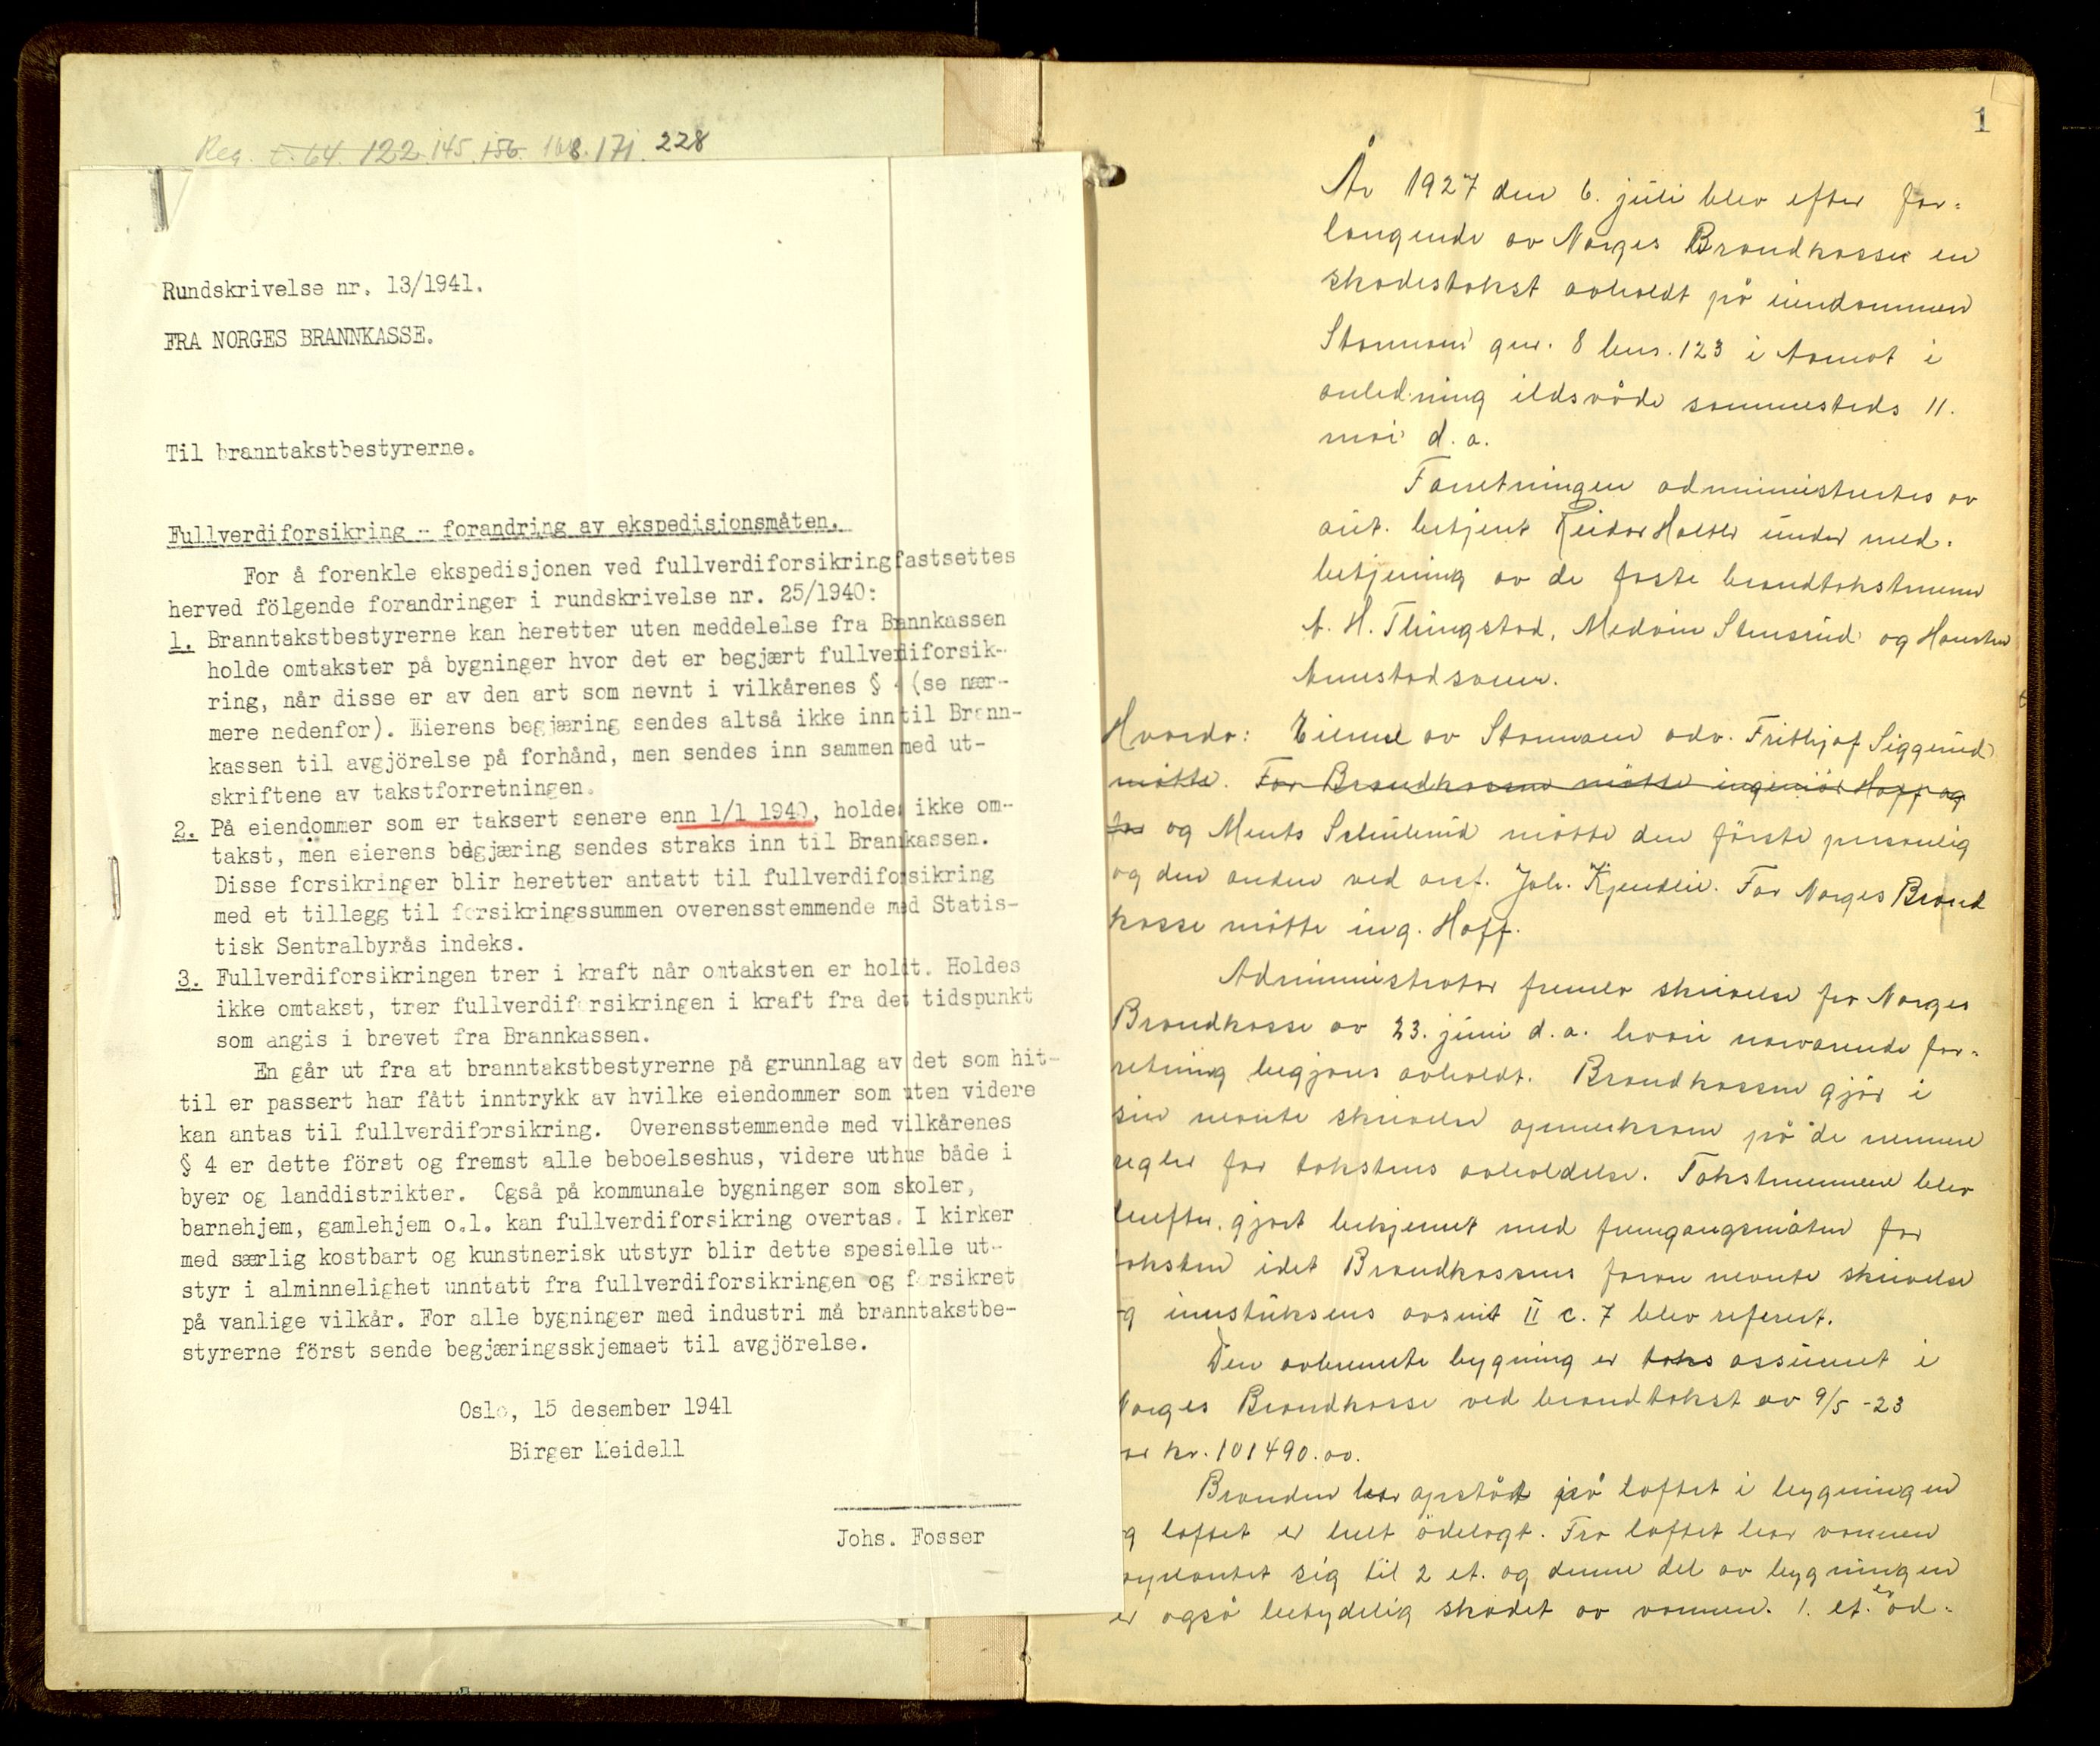 Reg. t. 64. 122. 145. 156. 168. 171. 228
Rundskrivelse nr. 13/1941.
FRA NORGES BRANNKASSE.
Til branntakstbestyrerne.
Fullverdiforsikring - forandring av ekspedisjonsmåten.
For å forenkle ekspedisjonen ved fullverdiforsikring fastsettes
herved fölgende forandringer i rundskrivelse nr. 25/1940:
1. Branntakstbestyrerne kan heretter uten meddelelse fra Brannkassen
holde omtakster på bygninger hvor det er begjært fullverdiforsik-
ring, når disse er av den art som nevnt i vilkårenes § 4 (se nær-
mere nedenfor). Eierens begjæring sendes altså ikke inn til Brann-
kassen til avgjörelse på forhånd, men sendes inn sammen med ut-
skriftene av takstforretningen.
2. På eiendommer som er taksert senere enn 1/1 1940, holdes ikke om-
takst, men eierens begjæring sendes straks inn til Brannkassen.
Disse forsikringer blir heretter antatt til fullverdiforsikring
med et tillegg til forsikringssummen overensstemmende med Statis-
tisk Sentralbyrås indeks.
3. Fullverdiforsikringen trer i kraft når omtaksten er holdt. Holdes
ikke omtakst, trer fullverdiforsikringen i kraft fra det tidspunkt
som angis i brevet fra Brannkassen.
En går ut fra at branntakstbestyrerne på grunnlag av det som hit-
til er passert har fått inntrykk av hvilke eiendommer som uten videre
kan antas til fullverdiforsikring. Overensstemmende med vilkårenes
§ 4 er dette först og fremst alle beboelseshus, videre uthus både i
byer og landdistrikter. Også på kommunale bygninger som skoler,
barnehjem, gamlehjem o.l. kan fullverdiforsikring overtas. I kirker
med særlig kostbart og kunstnerisk utstyr blir dette spesielle ut-
styr i alminnelighet unntatt fra fullverdiforsikringen og forsikret
på vanlige vilkår. For alle bygninger med industri må branntakstbe-
styrerne först sende begjæringsskjemaet til avgjörelse.
Oslo, 15 desember 1941
Birger Meidell
Johs. Fosser
1
År 1927 den 6. juli blev efter for-
langende av Norges Brandkasse en
skadestakst avholdt på eiendommen
Stamnan gnr. 8 bnr. 123 i Aamot i
anledning ildsvåde sammesteds 11.
mai d. a.
Forretningen administrertes av
aut. betjent Reidar Holtli under med-
betjening av de faste brandtakstmenn
A. H. Tlingstad, Medvin Stensrud og
Aunstadsauen.
Hvorda: Eierne av Stamnan adv. Frithjof Siggerud
møtte. For Brandkassen møtte ingeniør Hoff og
for og Ments Schulerud møtte den første personlig
og den anden ved orsf. Joh. Kjendlie. For Norges Brand
kasse møtte ing. Hoff.
Administrator fremla skrivelse fra Norges
Brandkasse av 23. juni d. a. hvori nærværende for-
retning begjæres avholdt. Brandkassen gjør i
sin nevnte skrivelse opmerksom på de nermere
regler for takstens avholdelse. Takstmennene blev
derefter gjort bekjennt med fremgangsmåten for
taksten idet Brandkassens foran nevnte skrivelse
og innstruksens avsnit II c. 7 blev referert.
Den avbrennte bygning er taks assurert i
Norges Brandkasse ved brandtakst av 9/5 -23
for kr. 101490.00.
Branden har opståt på loftet i bygningen
og loftet er helt ødelagt. Fra loftet har varmen
forplantet sig til 2 et. og denne del av bygningen
er også betydelig skadet av varmen. 1. et. er ød-